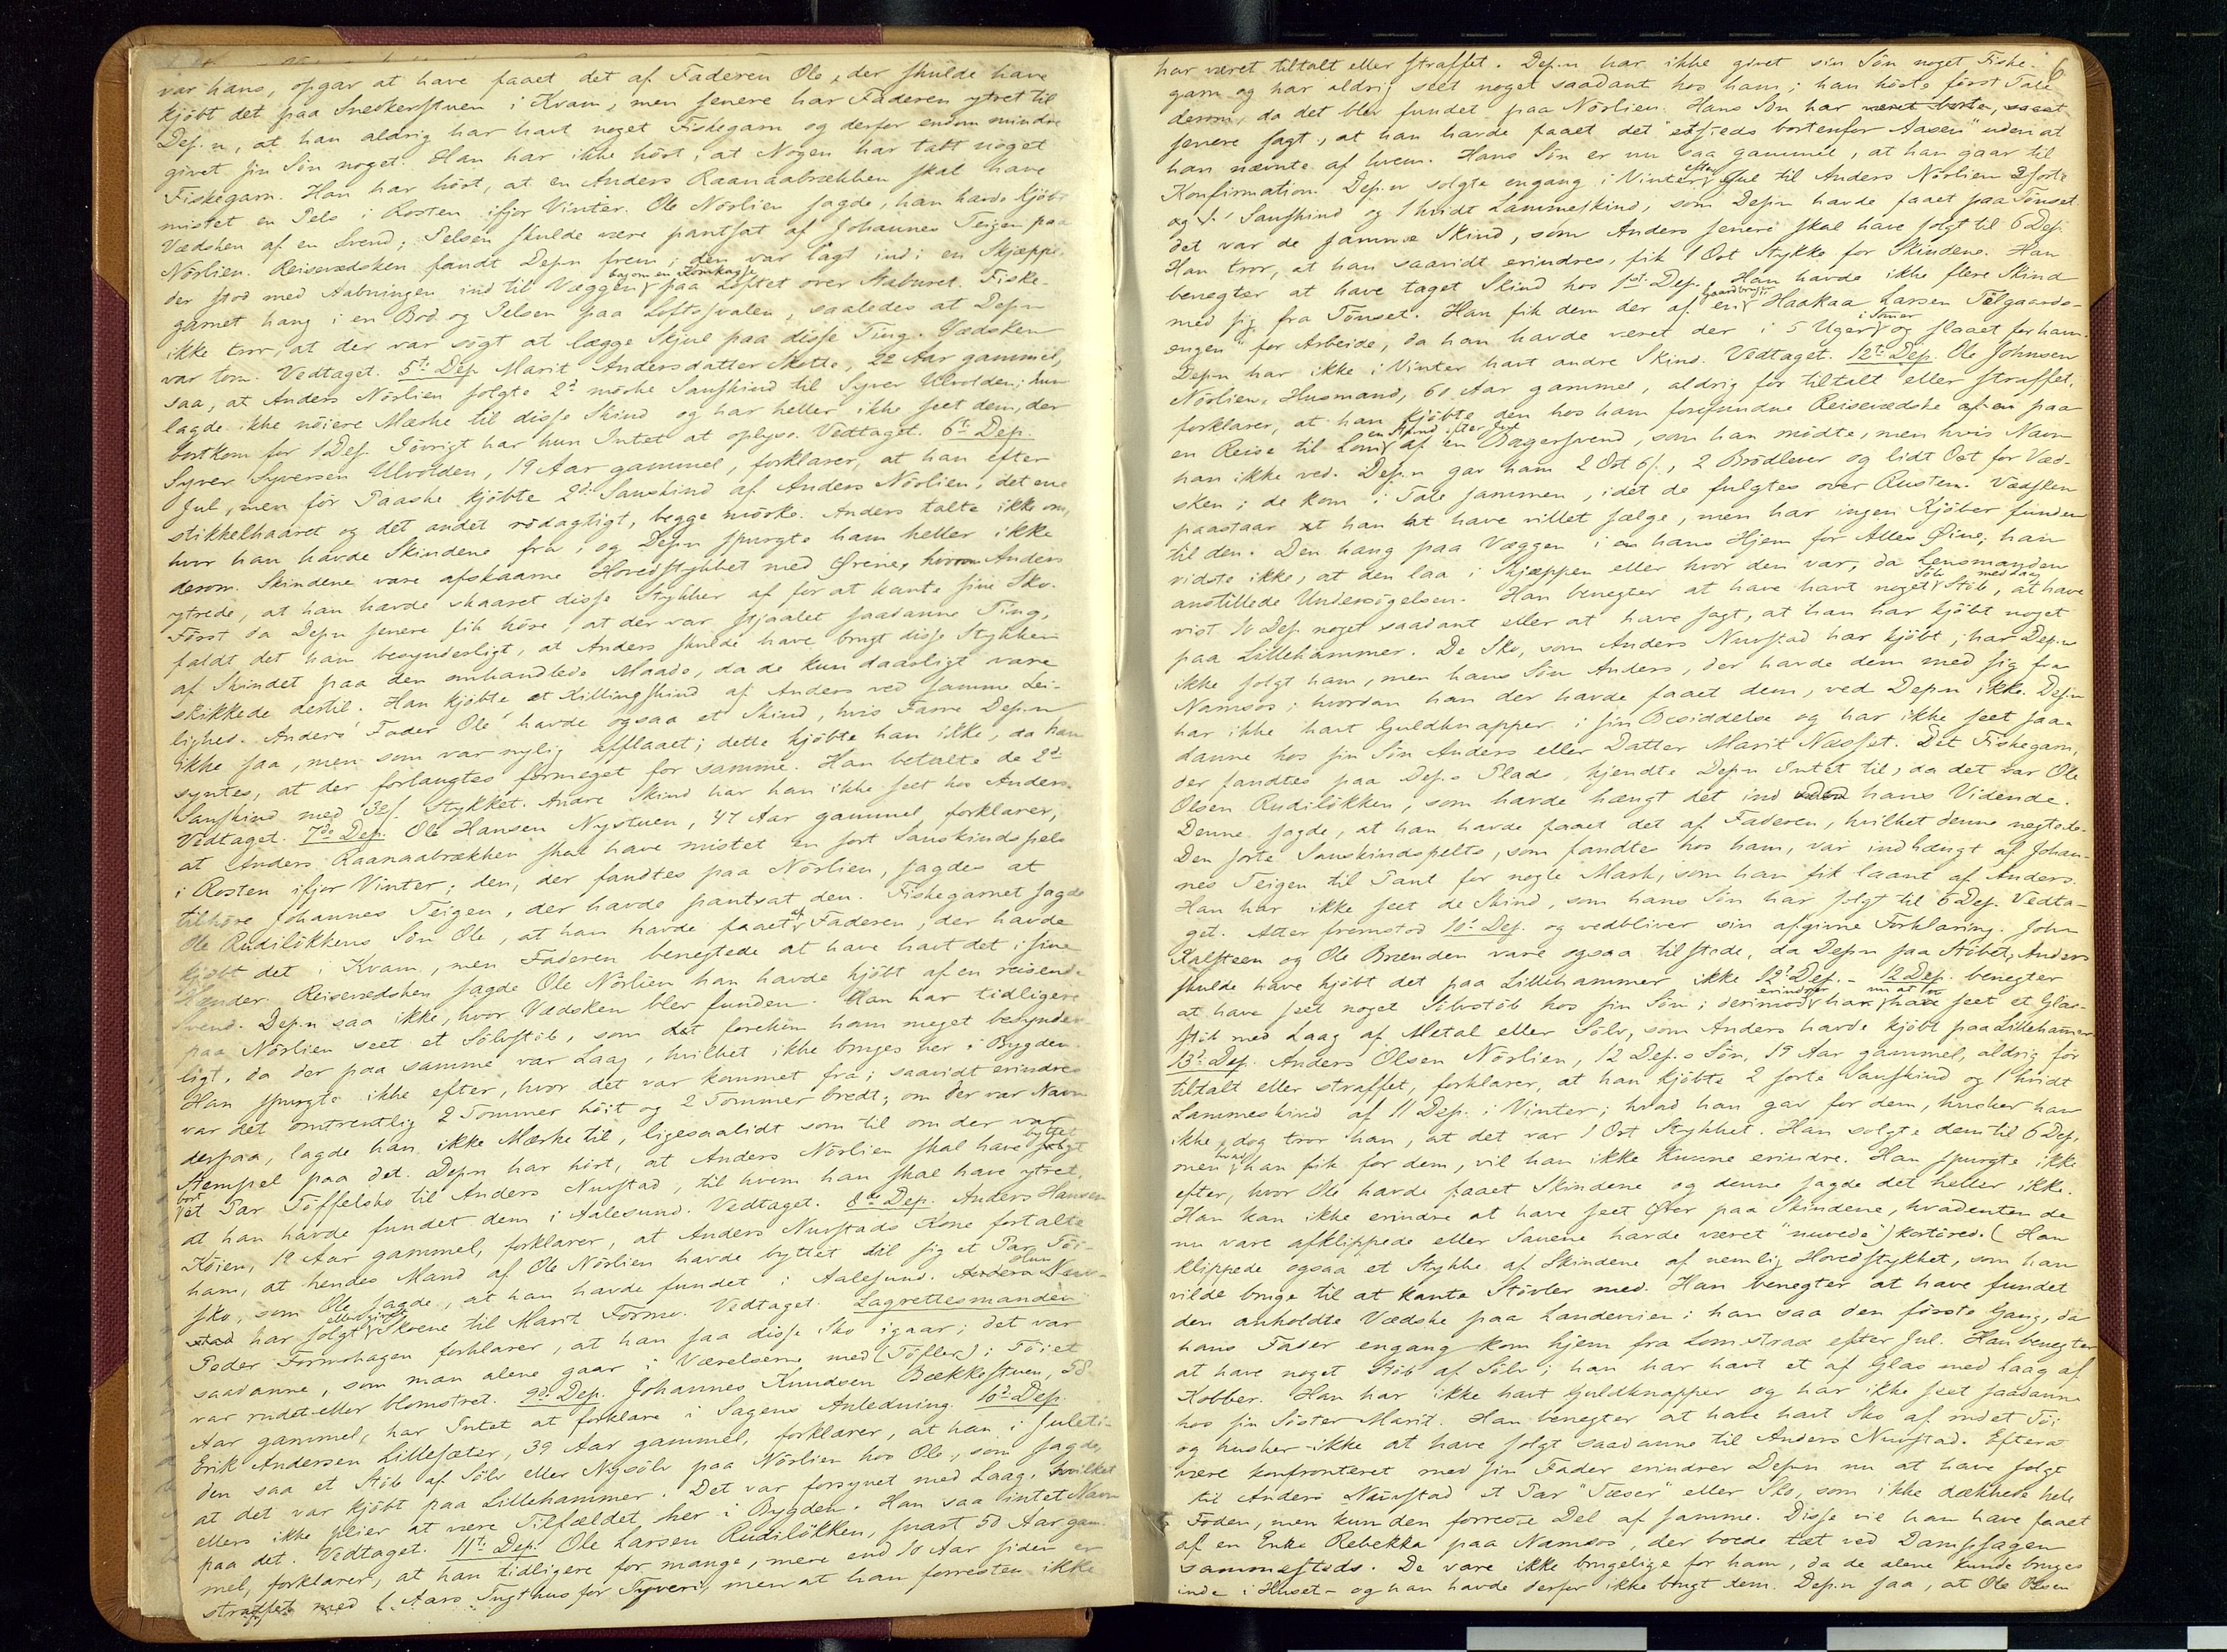 var hans, opgav at have faaet det af Faderen Ole, der skulde have
kjöbt det paa Snedkerstuen i Kvam, men senere har Faderen ytret til
Dep.n, at han aldrig har havt noget Fiskegarn og derfor endnu mindre
givet sin Sön noget. Han har ikke hört, at Nogen har tabt noget
Fiskegarn. Han har hört, at en Anders Raanaabrækken skal have
mistet en Pels i Rosten ifjor Vinter. Ole Nörlien sagde, han havde kjöbt
Vædsken af en Svend; Pelsen skulde være pantsat af Johannes Teigen paa
Nörlien. Reisevædsken fandt Dep.n frem; den var lagt ind i en Skjæppe
der stod med Aabningen ind til Væggen bagom en Kornkagge paa Loftet over Staburet. Fiske-
garnet hang i en Bod og Pelsen paa Loftssvalen, saaledes at Dep.n
ikke tror, at der var sögt at lægge Skjul paa disse Ting. Vædsken
var tom. Vedtaget. 5te Dep. Marit Andersdatter Skotte, 22 Aar gammel,
saa, at Anders Nörlien solgte 2de mörke Sauskind til Syver Ulvolden; hun
lagde ikke nöiere Mærke til disse Skind og har heller ikke seet dem, der
bortkom for 1 Dep. Iövrigt har hun Intet at oplyse. Vedtaget. 6te Dep.
Syver Syversen Ulvolden, 19 Aar gammel, forklarer, at han efter
Jul, men för Paaske kjöbte 2de Sauskind af Anders Nörlien, det ene
stikkelhaaret og det andet rödagtigt, begge mörke. Anders talte ikke om,
hvor han havde Skindene fra, og Dep.n spurgte ham heller ikke
derom. Skindene vare afskaarne Hovedstykket med Ørene, hvorom Anders
ytrede, at han havde skaaret disse Stykker af for at kante sine Sko.
Först da Dep.n senere fik höre, at der var stjaalet saadanne Ting,
faldt det ham besynderligt, at Anders skulde have brugt disse Stykker
af Skindet paa den omhandlede Maade, da de kun daarligt vare
skikkede dertil. Han kjöbte et Killingskind af Anders ved samme Lei-
lighed. Anders' Fader Ole havde ogsaa et Skind, hvis Farve Dep.n
ikke saa, men som var nylig afflaaet; dette kjöbte han ikke, da han
syntes, at der forlangtes formeget for samme. Han betalte de 2de
Sauskind med 36 s. Stykket. Andre Skind har han ikke seet hos Anders.
Vedtaget. 7de Dep. Ole Hansen Nystuen, 47 Aar gammel forklarer,
at Anders Raanaabrækken skal have mistet en sort Sauskindspels
i Rosten ifjor Vinter; den, der fandtes paa Nörlien, sagdes at
tilhöre Johannes Teigen, der havde pantsat den. Fiskegarnet sagde
Ole Rudilökkens Sön Ole, at han havde faaet af Faderen, der havde
kjöbt det i Kvam, men Faderen benegtede at have havt det i sine
Hænder. Reisevædsken sagde Ole Nörlien han havde kjöbt af en reisende
Svend. Dep.n saa ikke, hvor Vædsken blev funden. Han har tidligere
paa Nörlien seet et Sölvstöb, som det forekom ham meget besynder-
ligt, da der paa samme var Laag, hvilket ikke bruges her i Bygden.
Han spurgte ikke efter, hvor det var kommet fra; saavidt erindres
var det omtrentlig 2 Tommer höit og 2 Tommer bredt; om der var Navn
derpaa, lagde han ikke Mærke til, ligesaalidt som til om der var
Stempel paa det. Dep.n har hört, at Anders Nörlien skal have byttet solgt
bort et Par Töffelsko til Anders Nustad, til hvem han skal have ytret,
at han havde fundet dem i Aalesund. Vedtaget. 8de Dep. Anders Hansen
Köien, 19 Aar gammel, forklarer, at Anders Nustads Kone fortalte
ham, at hendes Mand af Ole Nörlien havde byttet til sig et Par Töi-
sko, som Ole sagde, at han havde fundet i Aalesund. Hun Anders Nu-
stad har solgt eller givet Skoene til Marit Formo. Vedtaget. Lagrettesmanden
Peder Formohagen forklarer, at han saa disse Sko igaar; det var
saadanne, som man alene gaar i Værelserne med (Töfler); Töiet
var rudet eller blomstret. 9de Dep. Johannes Knudsen Bækkestuen, 58
Aar gammel, har Intet at forklare i Sagens Anledning. 10de Dep.
Erik Andersen Lillesæter, 39 Aar gammel, forklarer, at han i Juleti-
den saa et Stöb af Sölv eller Nysölv paa Nörlien hos Ole, som sagde,
at det var kjöbt paa Lillehammer. Det var forsynet med Laag, hvilket
ellers ikke pleier at være Tilfældet her i Bygden. Han saa intet Navn
paa det. Vedtaget. 11te Dep. Ole Larsen Rudilökken, snart 50 Aar gam-
mel, forklarer, at han tidligere for mange, mere end 10 Aar siden er
straffet med Aars Tugthus for Tyveri, men at han forresten ikke
6
har været tiltalt eller straffet. Dep.n har ikke givet sin Sön noget Fiske-
garn og har aldrig seet noget saadant hos ham; han hörte först Tale
derom, da det blev fundet paa Nörlien. Hans Sön har været borte, saa
senere sagt, at han havde faaet det "etsteds bortenfor Aasen" uden at
han nævnte af hvem. Hans Sön er nu saa gammel, at han gaar til
Konfirmation. Dep.n solgte engang i Vinter efter Jul til Anders Nörlien 2 sorte
Sauskind og 1 hvidt Lammeskind, som Dep.n havde faaet paa Tönset.
det var de samme Skind, som Anders senere skal have solgt til 6 Dep.
Han tror, at han saavidt erindres, fik 1 Ort Stykke for Skindene. Han
benegter at have taget Skind hos 1ste Dep. Han havde ikke flere Skind
med sig fra Tönset. Han fik dem der af en gaardbruger Haakaa Larsen Telgaards-
engen for Arbeide, da han havde været der i 5 Uger i Sommer og slaaet for ham.
Dep.n har ikke i Vinter havt andre Skind. Vedtaget. 12te Dep. Ole Johnsen
Nörlien, Husmand, 60 Aar gammel, aldrig för tiltalt eller straffet,
forklarer, at han kjöbte den hos ham forefundne Reisevædske af en paa
en Reise til Lom en Stund efter Jul af en Bagersvend, som han mödte, men hvis Navn
han ikke ved. Dep.n gav ham 2 Ort 6 s., 2 Brödlever og lidt Ost for Væd-
sken; de kom i Tale sammen, idet de fulgtes over Rusten. Vædsken
paastaar at han at have villet sælge, men har ingen Kjöber funden
til den. Den hang paa Væggen i en hans Hjem for Alles Øine; han
vidste ikke, at den laa i Skjæppen eller hvor den var, da Lensmanden
anstillede Undersögelsen. Han benegter at have havt noget Sölv Stöb med Laag, at have
vist 10 Dep. noget saadant eller at have sagt, at han har kjöbt noget
paa Lillehammer. De Sko, som Anders Nustad har kjöbt, har Dep.n
ikke solgt ham, men hans Sön Anders, der havde dem med sig fra
Namsos; hvordan han der havde faaet dem, ved Dep.n ikke. Dep.n
har ikke havt Guldknapper i sin Besiddelse og har ikke seet saa-
danne hos sin Sön Anders eller Datter Marit Næsset. Det Fiskegarn,
der fandtes paa Dep.s Plads, kjendte Dep.n Intet til, da det var Ole
Olsen Rudilökken, som havde hængt det ind uden hans Vidende.
Denne sagde, at han havde faaet det af Faderen, hvilket denne negtede.
Den sorte Sauskindspelts, som fandtes hos ham, var indhængt af Johan-
nes Teigen til Pant for nogle Mark, som han fik laant af Anders.
Han har ikke seet de Skind, som hans Sön har solgt til 6 Dep. Vedta-
get. Atter fremstod 10de Dep. og vedbliver sin afgivne Forklaring. John
Kalsteen og Ole Brænden vare ogsaa tilstede, da Dep.n saa Stöbet, Anders
skulde have kjöbt det paa Lillehammer ikke 12te Dep. - 12 Dep. benegter
at have seet noget Sölvstöb hos sin Sön; derimod erindrer han nu at have seet et Glas-
stöb med Laag af Metal eller Sölv, som Anders havde kjöbt paa Lillehammer
13de Dep. Anders Olsen Nörlien, 12 Dep.s Sön, 19 Aar gammel, aldrig för
tiltalt eller straffet, forklarer, at han kjöbte 2 sorte Sauskind og 1 hvidt
Lammeskind af 11 Dep. i Vinter; hvad han gav for dem, husker han
ikke, dog tror han, at det var 1 Ort Stykket. Han solgte dem til 6 Dep.
men hvad han fik for dem, vil han ikke kunne erindre. Han spurgte ikke
efter, hvor Ole havde faaet Skindene og denne sagde det heller ikke.
Han kan ikke erindre at have seet Ører paa Skindene, hvadenten de
nu vare afklippede eller Sauene havde været "nuvede") kortörede. (Han
klippede ogsaa et Stykke af Skindene af nemlig Hovedstykket, som han
vilde bruge til at kante Stövler med. Han benegter at have fundet
den anholdte Vædske paa Landeveien: han saa den förste Gang, da
hans Fader engang kom hjem fra Lom strax efter Jul. Han benegter
at have noget Stöb af Sölv; han har havt et af Glas med Laag af
Kobber. Han har ikke havt Guldknapper og har ikke seet saadanne
hos sin Söster Marit. Han benegter at have havt Sko af rudet Töi
og husker ikke at have solgt saadanne til Anders Nustad. Efter at
være konfronteret med sin Fader erindrer Dep.n nu at have solgt
til Anders Nustad et Par "Tæser" eller Sko, som ikke dækkede hele
Foden, men kun den forreste Del af samme. Disse vil han have faaet
af en Enke Rebekka paa Namsos, der boede tæt ved Dampsagen
sammesteds. De vare ikke brugelige for ham, da de alene kunde bruges
inde i Huset - og han havde derfor ikke brugt dem. Dep.n saa, at Ole Olsen